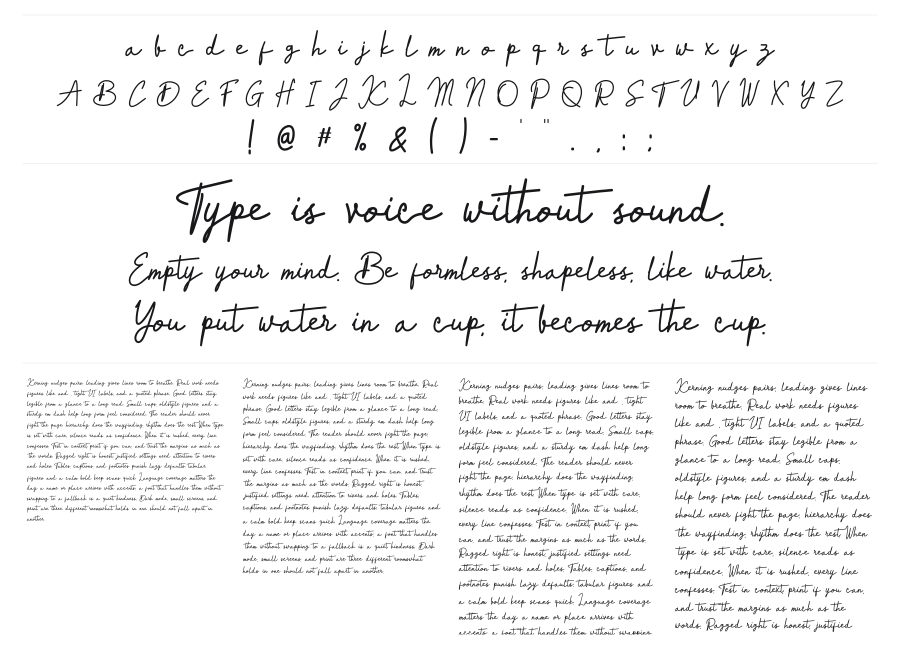 a b c d e f g h i j k l m n o p q r s t u v w x y z
A B C D E F G H I J K L M N O P Q R S T U V W X Y Z
! @ # % & ( ) - ' " . , : ;
Type is voice without sound.
Empty your mind. Be formless, shapeless, like water.
You put water in a cup, it becomes the cup.
Kerning nudges pairs; leading gives lines room to breathe. Real work needs
figures like and , tight UI labels, and a quoted phrase. Good letters stay
legible from a glance to a long read. Small caps, oldstyle figures, and a
sturdy em dash help long form feel considered. The reader should never
fight the page; hierarchy does the wayfinding, rhythm does the rest. When type
is set with care, silence reads as confidence. When it is rushed, every line
confesses. Test in context, print if you can, and trust the margins as much as
the words. Ragged right is honest; justified settings need attention to rivers
and holes. Tables, captions, and footnotes punish lazy defaults; tabular
figures and a calm bold keep scans quick. Language coverage matters the
day a name or place arrives with accents; a font that handles them without
swapping to a fallback is a quiet kindness. Dark mode, small screens, and
print are three different rooms; what holds in one should not fall apart in
another.
Kerning nudges pairs; leading gives lines room to breathe. Real
work needs figures like and , tight UI labels, and a quoted
phrase. Good letters stay legible from a glance to a long read.
Small caps, oldstyle figures, and a sturdy em dash help long
form feel considered. The reader should never fight the page;
hierarchy does the wayfinding, rhythm does the rest. When type is
set with care, silence reads as confidence. When it is rushed,
every line confesses. Test in context, print if you can, and trust
the margins as much as the words. Ragged right is honest;
justified settings need attention to rivers and holes. Tables,
captions, and footnotes punish lazy defaults; tabular figures and
a calm bold keep scans quick. Language coverage matters the
day a name or place arrives with accents; a font that handles
them without swapping to a fallback is a quiet kindness. Dark
mode, small screens, and print are three different rooms; what
holds in one should not fall apart in another.
Kerning nudges pairs; leading gives lines room to
breathe. Real work needs figures like and , tight
UI labels, and a quoted phrase. Good letters stay
legible from a glance to a long read. Small caps,
oldstyle figures, and a sturdy em dash help long
form feel considered. The reader should never
fight the page; hierarchy does the wayfinding,
rhythm does the rest. When type is set with care,
silence reads as confidence. When it is rushed,
every line confesses. Test in context, print if you
can, and trust the margins as much as the words.
Ragged right is honest; justified settings need
attention to rivers and holes. Tables, captions, and
footnotes punish lazy defaults; tabular figures and
a calm bold keep scans quick. Language coverage
matters the day a name or place arrives with
accents; a font that handles them without swapping
Kerning nudges pairs; leading gives lines
room to breathe. Real work needs figures
like and , tight UI labels, and a quoted
phrase. Good letters stay legible from a
glance to a long read. Small caps,
oldstyle figures, and a sturdy em dash
help long form feel considered. The reader
should never fight the page; hierarchy does
the wayfinding, rhythm does the rest. When
type is set with care, silence reads as
confidence. When it is rushed, every line
confesses. Test in context, print if you can,
and trust the margins as much as the
words. Ragged right is honest; justified